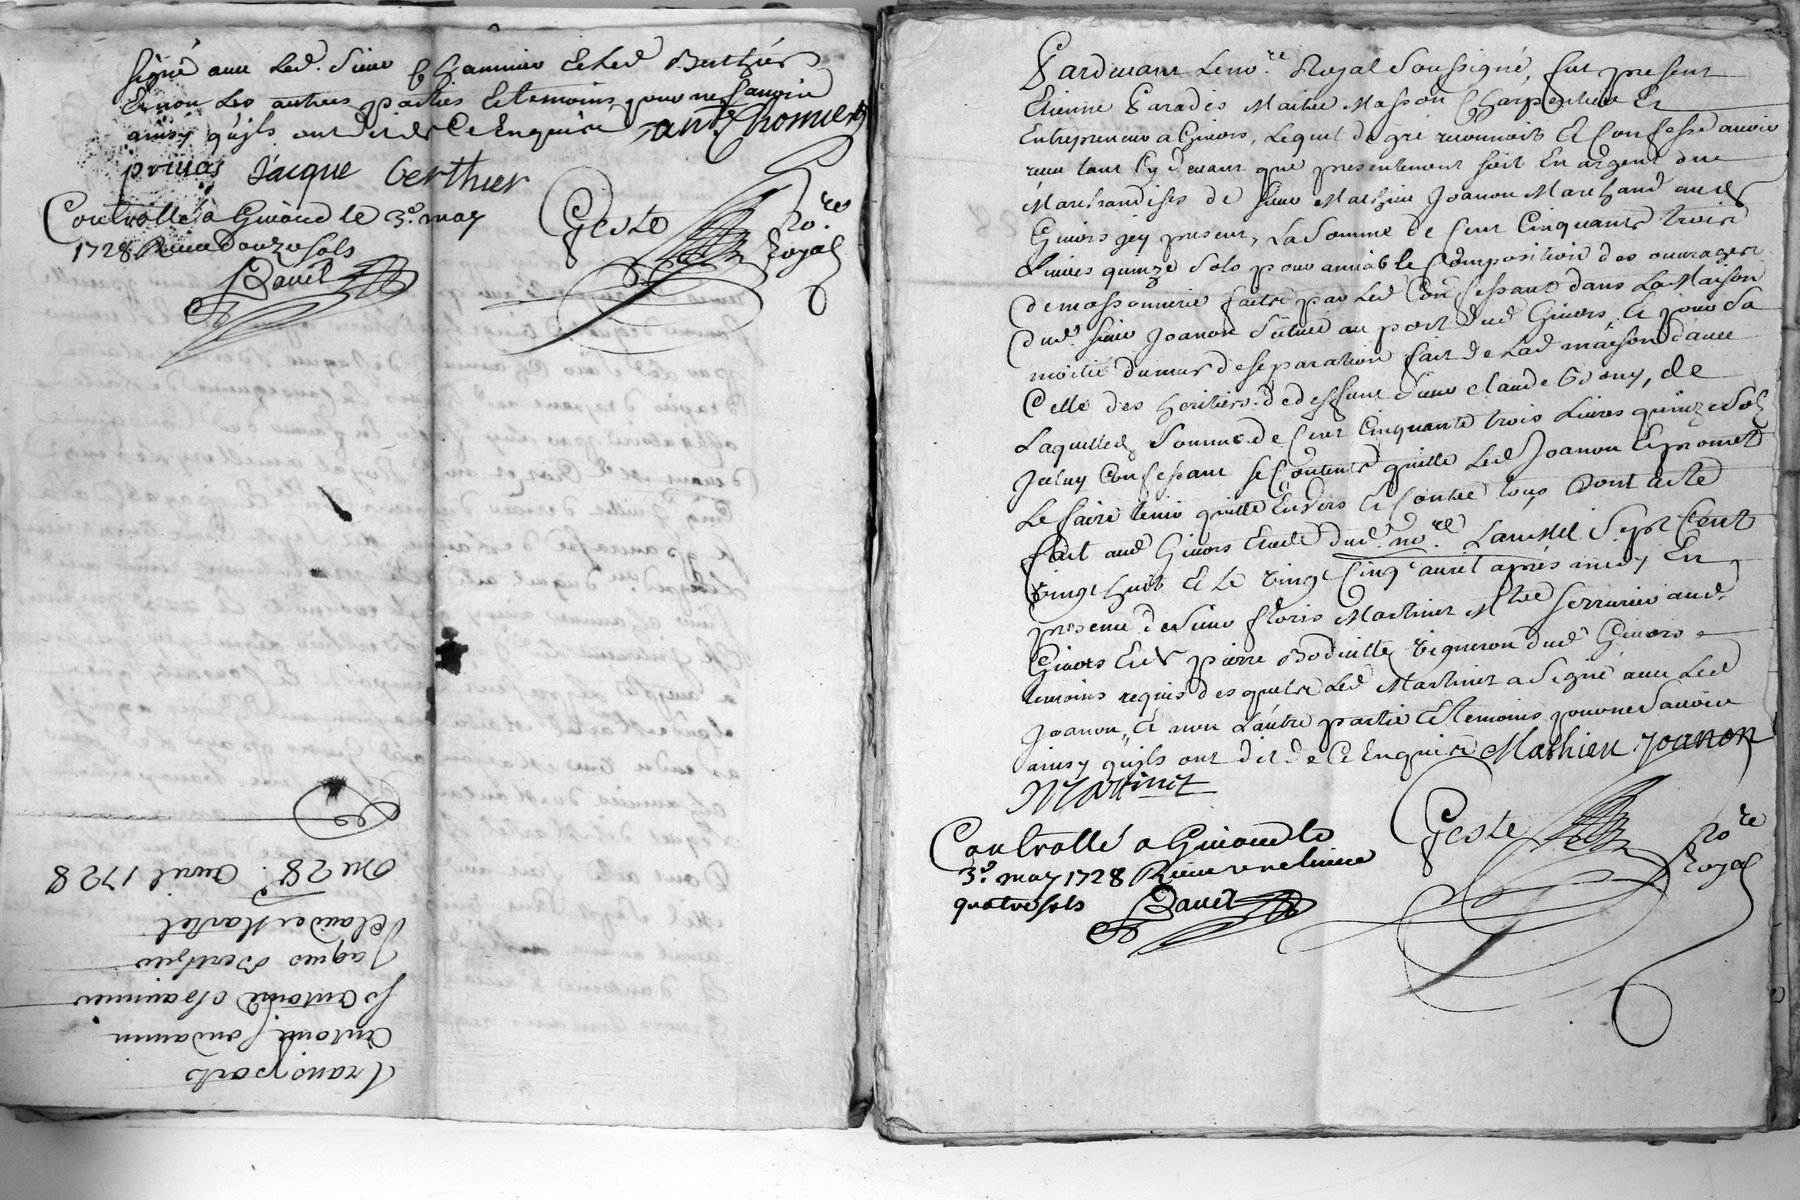 signé avec led. sieur Chaumier et led Berthier
et non les autres parties et temoins pour ne sçavoir
ainsy qu'ils ont dit de ce enquis
Jacque berthier
Controllé a Givord le 3e. may
1728 Receu douze sols
Geste
no.re
Royal
Transport
antoine
Sr antoine Chaumier
Jaques Berthier
Claude Martel
Du 28e. avril 1728
Pardevant le no.re Royal soussigné, fut present
Etienne Paradis Maitre Masson Charpentier et
Entrepreneur a Givors, lequel de gré reconnoit et confesse avoir
receu tant cy devant que presentement soit en argent ou
Marchandises de sieur Mathieu Joanon Marchand aud
Givors icy present, la somme de cent cinquante trois
Livres quinze sols pour amiable composition des ouvrages
de massonnerie faits par led Confessant dans la Maison
dud. sieur Joanon située au port dud Givors et pour sa
moitié du mur de separation fait de lad maison d'avec
Celle des heritiers de deffunt sieur Claude, de
Laquelle somme de cent cinquante trois livres quinze sols
Iceluy confessant se contente quitte led Joanon et promet
le faire tenir quitte envers et contre tous dont acte
fait aud Givors Etude dud. no.re L'an mil sept cent
vingt huit et le vingt cinq avril après midy En
presence de sieur floris Martinet M.tre serrurier aud.
Givors et de pierre Bodin vigneron dud Givors
temoins requis desquels led Martinet a signé avec led
Joanon, et non l'autre partie et temoins pour ne sçavoir
ainsy qu'ils ont dit de ce enquis Mathieu Joanon
Martinet
Controllé a Givord le
3e. may 1728 Receu une livre
quatre sols
Geste
no.re
Royal